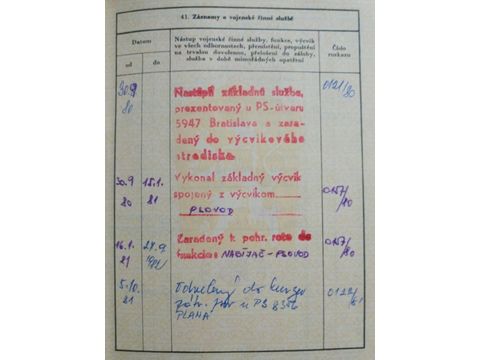 41. Záznamy o vojenské činné službě
Datum
od do
Nástup vojenské činné služby, funkce, výcvik
ve všech odbornostech, přemístění, propuštění
na trvalou dovolenou, přeložení do zálohy,
služba v době mimořádných opatření
Číslo
rozkazu
30.9
80
Nastúpil základnú službu,
prezentovaný u PS-útvaru
5947 Bratislava a zara-
dený do výcvikového
strediska
0121/80
30.9 15.1.
80 81
Vykonal základný výcvik
spojený z výcvikom
PSOVOD
0157/80
16.1. 27.9
81 1981
Zaradený k pohr. rote do
funkcie: NABÍJAČ-PSOVOD
0157/80
5.10.
81
Odvelený do kurzu
u PS 8356
PLANÁ
0122/81